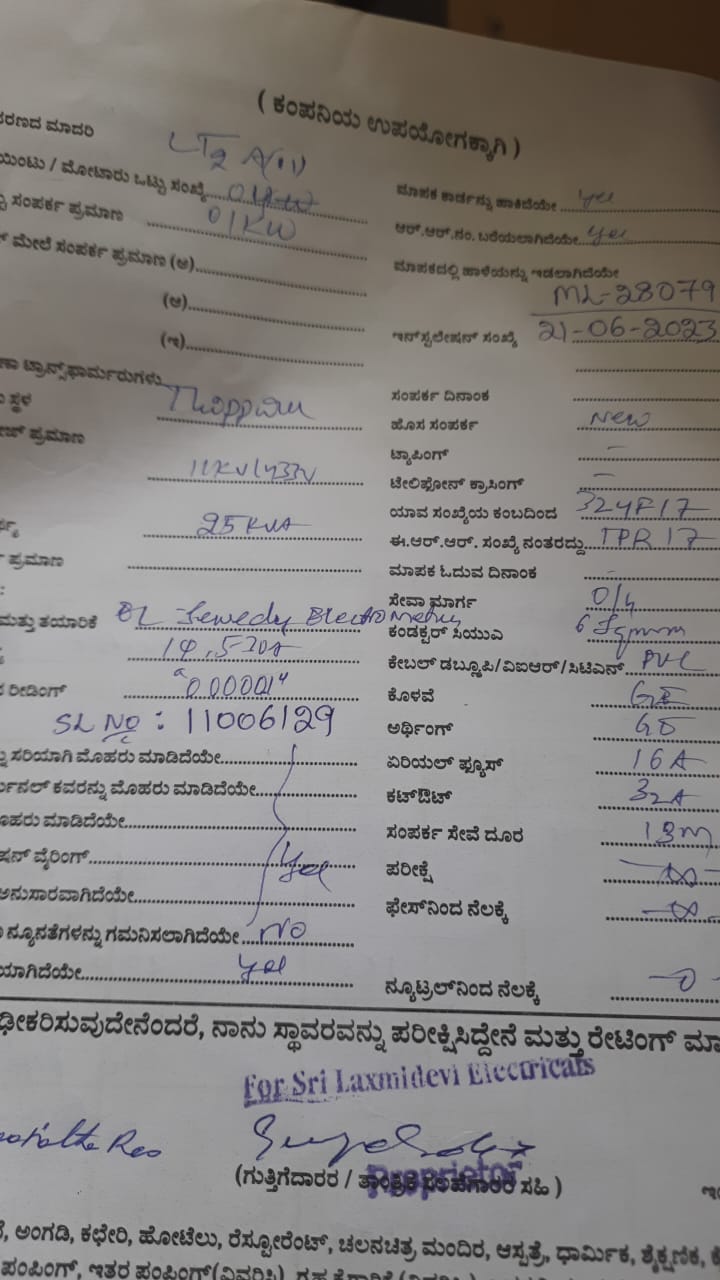 ( ಕಂಪನಿಯ ಉಪಯೋಗಕ್ಕಾಗಿ )
ರಣದ ಮಾದರಿ LT2 A(ii)
ಯಿಂಟು / ಮೋಟಾರು ಒಟ್ಟು ಸಂಖ್ಯೆ
ಸಂಪರ್ಕ ಪ್ರಮಾಣ 01KW
ಮೇಲೆ ಸಂಪರ್ಕ ಪ್ರಮಾಣ (ಅ)
(ಆ)
(ಇ)
ಟ್ರಾನ್ಸ್‌ಫಾರ್ಮರುಗಳು
ಸ್ಥಳ
ಪ್ರಮಾಣ 11KV/433V
25 KVA
ಪ್ರಮಾಣ
ಮತ್ತು ತಯಾರಿಕೆ
1φ, 5-30A
ರೀಡಿಂಗ್ 000001
SL NO : 11006129
ಸರಿಯಾಗಿ ಮೊಹರು ಮಾಡಿದೆಯೇ
ರ್ಮಿನಲ್ ಕವರನ್ನು ಮೊಹರು ಮಾಡಿದೆಯೇ
ಮೊಹರು ಮಾಡಿದೆಯೇ
ಷನ್ ವೈರಿಂಗ್ Yes
ಅನುಸಾರವಾಗಿದೆಯೇ
ನ್ಯೂನತೆಗಳನ್ನು ಗಮನಿಸಲಾಗಿದೆಯೇ NO
ಯಾಗಿದೆಯೇ Yes
ಮಾಪಕ ಕಾರ್ಡನ್ನು ಹಾಕಿದೆಯೇ Yes
ಆರ್.ಆರ್.ನಂ. ಬರೆಯಲಾಗಿದೆಯೇ Yes
ಮಾಪಕದಲ್ಲಿ ಹಾಳೆಯನ್ನು ಇಡಲಾಗಿದೆಯೇ
ML-28079
ಇನ್‌ಸ್ಟಲೇಷನ್ ಸಂಖ್ಯೆ 21-06-2023
ಸಂಪರ್ಕ ದಿನಾಂಕ
ಹೊಸ ಸಂಪರ್ಕ New
ಟ್ಯಾಪಿಂಗ್ -
ಟೇಲಿಫೋನ್ ಕ್ರಾಸಿಂಗ್ -
ಯಾವ ಸಂಖ್ಯೆಯ ಕಂಬದಿಂದ
ಈ.ಆರ್.ಆರ್. ಸಂಖ್ಯೆ ನಂತರದ್ದು TPR 17
ಮಾಪಕ ಓದುವ ದಿನಾಂಕ -
ಸೇವಾ ಮಾರ್ಗ O/H
ಕಂಡಕ್ಟರ್ ಸಿಯುಎ 6 Sqmm
ಕೇಬಲ್ ಡಬ್ಲ್ಯೂಪಿ/ವಿಐಆರ್/ಸಿಟಿಎಸ್ PVC
ಕೊಳವೆ GI
ಅರ್ಥಿಂಗ್ GI
ಏರಿಯಲ್ ಫ್ಯೂಸ್ 16 A
ಕಟ್‌ಔಟ್ 32A
ಸಂಪರ್ಕ ಸೇವೆ ದೂರ 13m
ಪರೀಕ್ಷೆ -∞-
ಫೇಸ್‌ನಿಂದ ನೆಲಕ್ಕೆ -∞-
ನ್ಯೂಟ್ರಲ್‌ನಿಂದ ನೆಲಕ್ಕೆ -0-
ಧೀಕರಿಸುವುದೇನೆಂದರೆ, ನಾನು ಸ್ಥಾವರವನ್ನು ಪರೀಕ್ಷಿಸಿದ್ದೇನೆ ಮತ್ತು ರೇಟಿಂಗ್ ಮಾ
For Sri Laxmidevi Electricals
(ಗುತ್ತಿಗೆದಾರರ / ತಾಂತ್ರಿಕ ಸಲಹೆಗಾರರ ಸಹಿ )
Proprietor
ಅಂಗಡಿ, ಕಛೇರಿ, ಹೋಟೆಲು, ರೆಸ್ಟೋರೆಂಟ್, ಚಲನಚಿತ್ರ ಮಂದಿರ, ಆಸ್ಪತ್ರೆ, ಧಾರ್ಮಿಕ, ಶೈಕ್ಷಣಿಕ,
ಪಂಪಿಂಗ್, ಇತರ ಪಂಪಿಂಗ್(ವಿವರಿಸಿ)